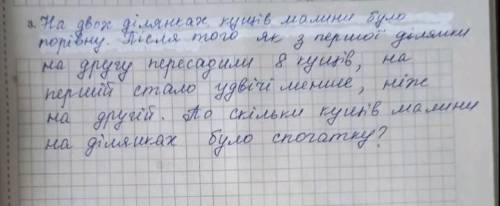 а. На двох ділянках кущів малини було
порівну. Після того як з першої ділянки
на другу пересадили 8 кущів, на
першій стало удвічі менше, ніж
на другій. По скільки кущів малини
на ділянках було спочатку?